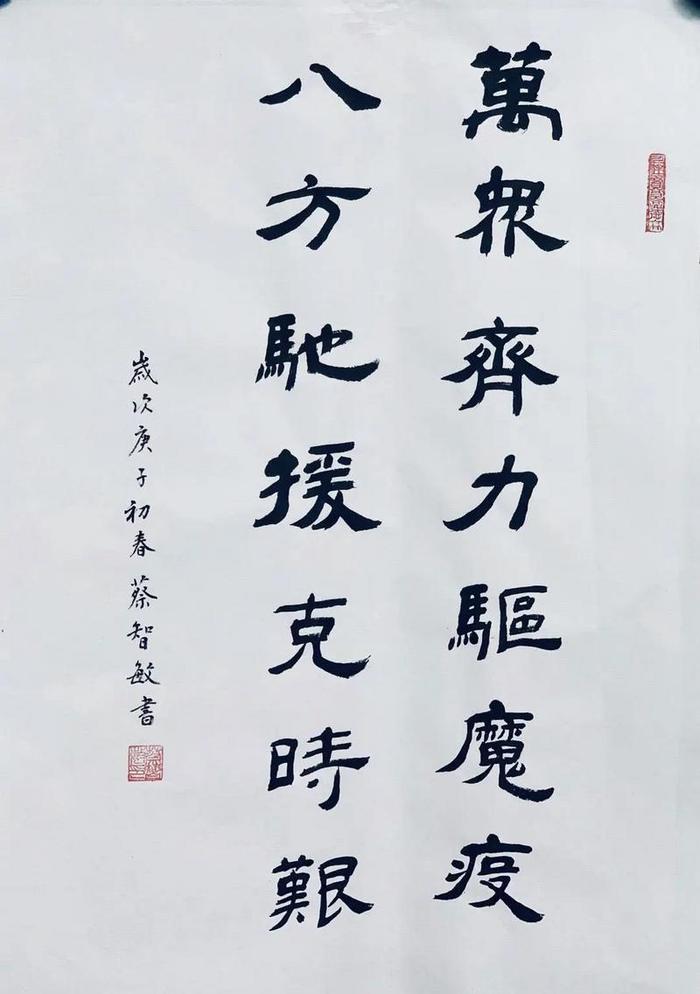 萬眾齊力驅魔疫
八方馳援克時艱
歲次庚子初春蔡智敏書